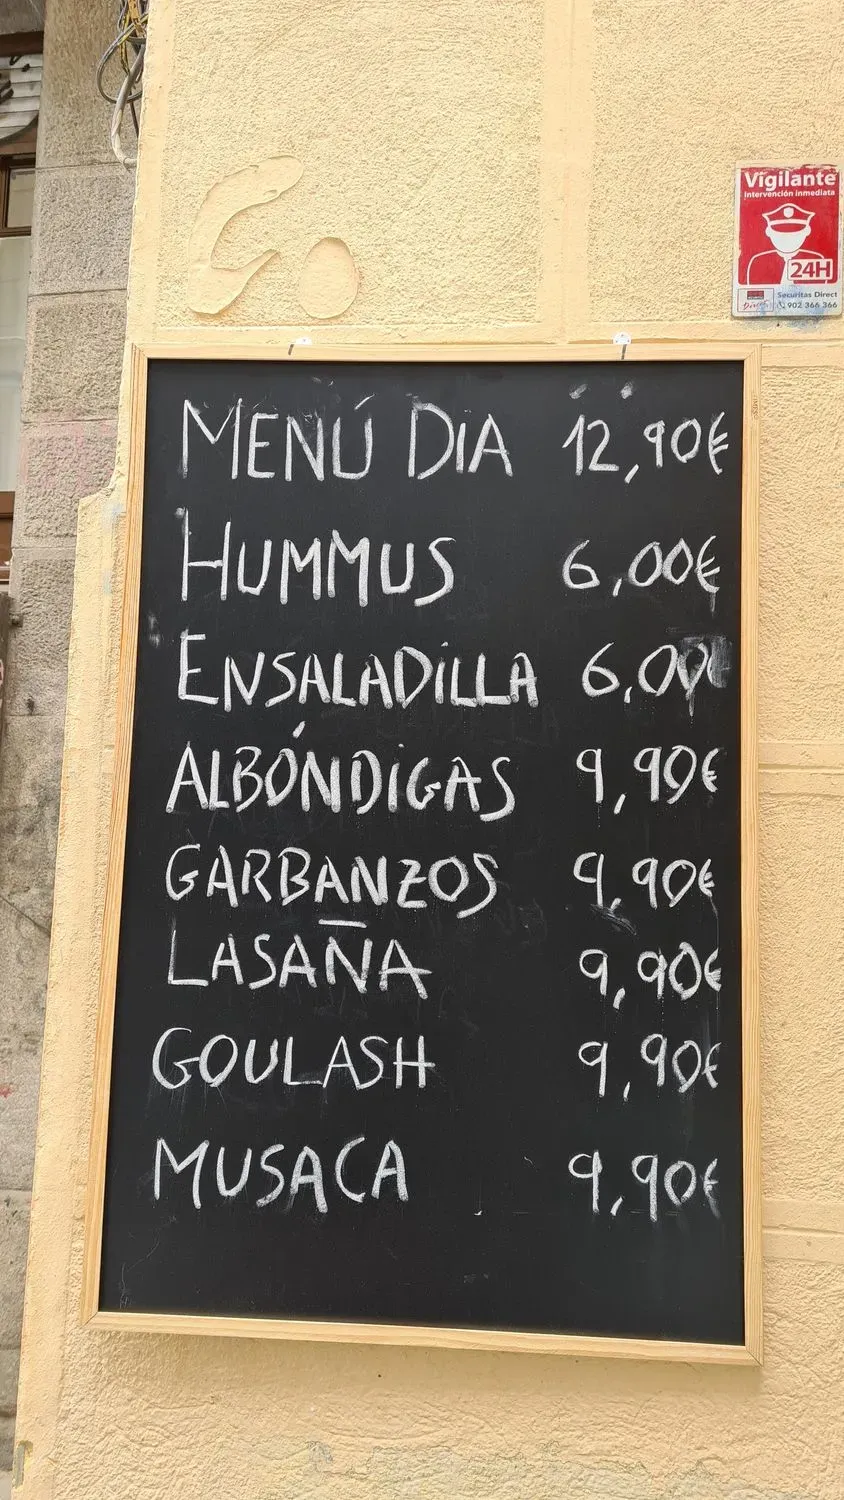 Vigilante
intervención inmediata
24H
Securitas Direct
902 366 366
MENÚ DiA 12,90€
HUMMUS 6,00€
ENSALADiLLA 6,00
ALBÓNDiGAS 9,90€
GARBANZOS 9,90€
LASAÑA 9,90€
GOULASH 9,90€
MUSACA 9,90€